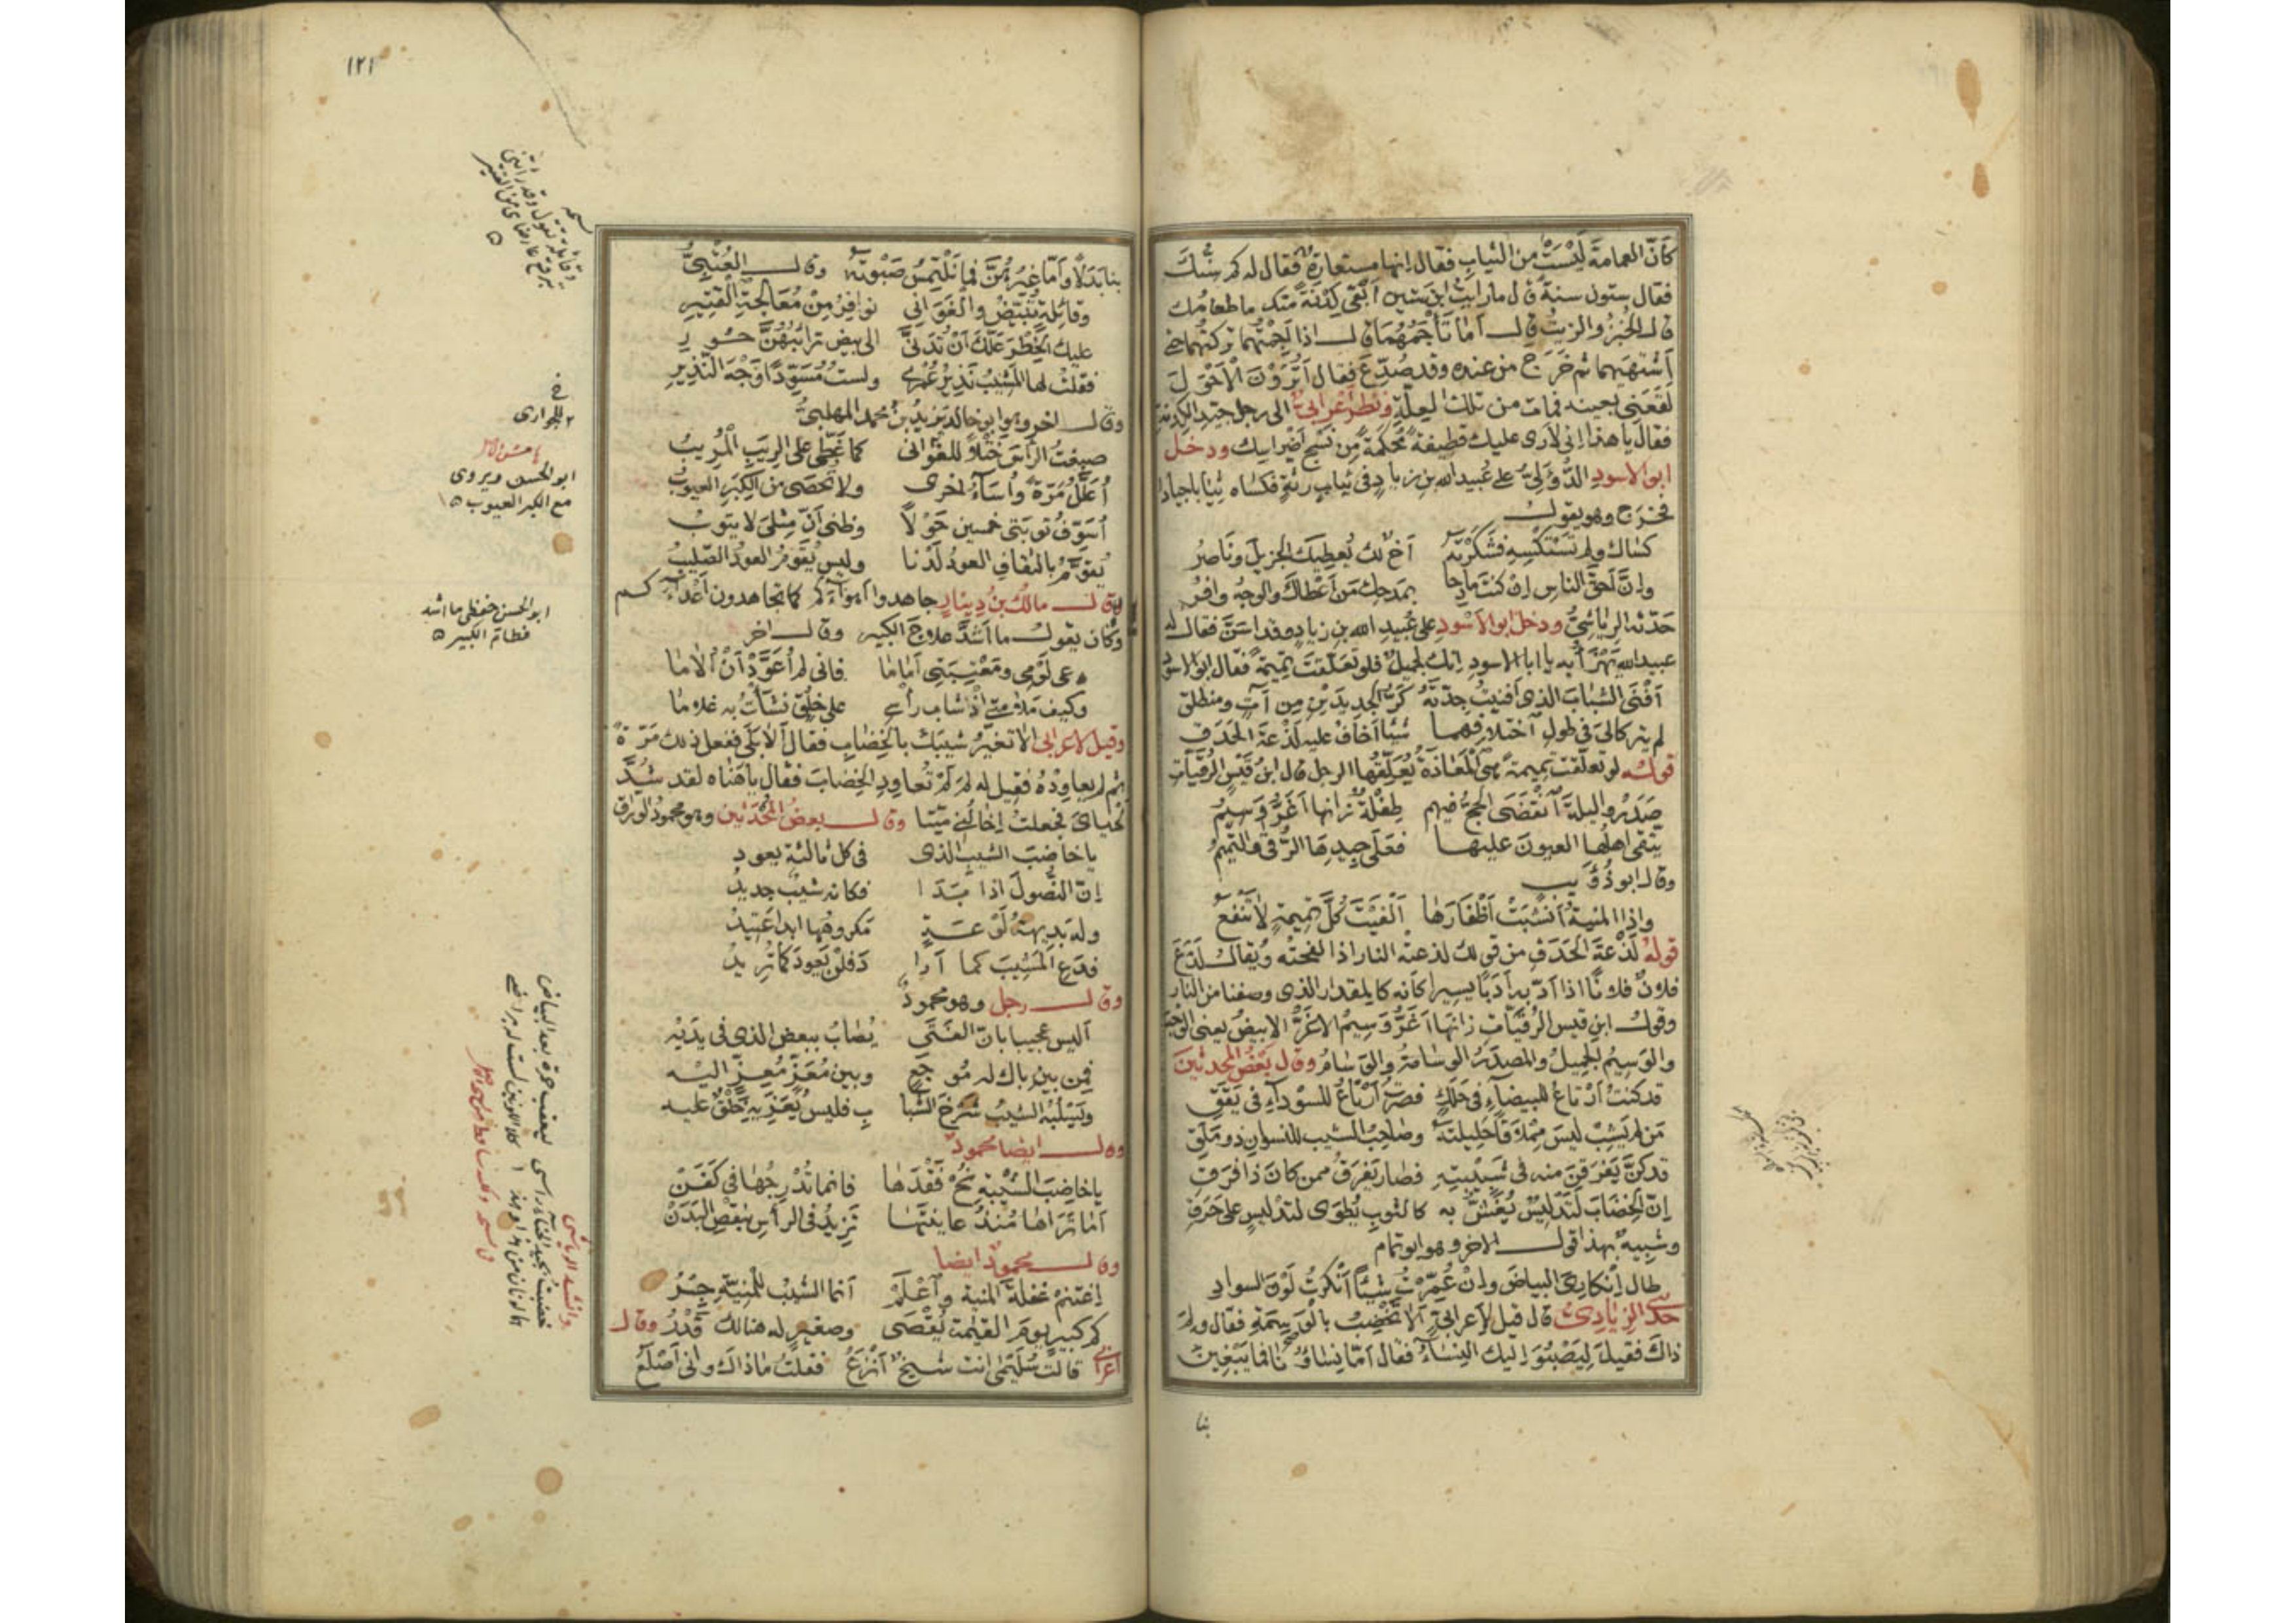 كَأَنَّ العمامةَ لَيْسَتْ من الثياب فقال إنها مستعارة فقال له كم سنّك
فقال ستون سنة قال ما رأيت ابن ستين أبقى كِدْنَةً منك ما طعامك
قال الخُبْزُ والزيتُ قال أما تَأْجَمُهُمَا قال اذا أَجَمْتُهُما تركتهما حتى
أَشْتَهِيَهما ثم خَرَجَ من عنده وقد صُدِّعَ فقال أَتُرَوْنَ الأَحْوَلَ
لَقَعَنِي بعينه فمات من تلك العِلَّةِ ونَظَرَ أعرابيّ الى رجل جيّد الكِدنة
فقال يا هذا إنى لأرى عليك قطيفةً مُحْكَمَةً من نسج أضراسك ودخل
ابو الاسود الدُّؤَلِيُّ على عُبيد الله بن زيادٍ فى ثيابٍ رَثَّةٍ فكساه ثيابا جيادا
فخرج وهو يقول
كساك ولم تَسْتَكْسِهِ فشكرْتَهُ أخٌ لك يُعطيك الجزيلَ ونَاصرُ
وإنَّ أحقَّ الناس إنْ كنتَ مادحا بمدحك مَن أعطاك والوجهُ وافرُ
حَدَّثَنِه الرياشيُّ ودخل ابو الأسود على عُبيد الله بن زيادٍ وقد اسَنَّ فقال له
عبيد الله يَهْزَأُ به يا ابا الاسود إنك لجميلٌ فلو تعلّقتَ تميمةً فقال ابو الاسود
أَفْنَى الشبابَ الذى أفنيتُ جِدّتَهُ كَرُّ الجديدَيْنِ مِن آتٍ ومنطلق
لم يتركا لىَ فى طول اختلافهما شيئا أخاف عليه لَذْعَةَ الحَدَقِ
قوله لو تعلّقت تميمةً هى المَعَاذَةُ يُعَلِّقُها الرجل قال ابنُ قَيْسِ الرُّقَيَّاتِ
صَدَرُوا ليلةَ انْقَضَى الحجُّ فيهم طِفْلةٌ زانها أَغَرُّ وَسِيمُ
يتّقى اهلُها العيونَ عليها فعَلَى جِيدِهَا الرُّقَى والتميمُ
وقال ابو ذُؤَيبٍ
واذا المنيةُ أَنْشَبَتْ أَظْفَارَهَا أَلْفَيْتَ كُلَّ تميمةٍ لا تَنْفَعُ
قولهُ لَذْعَةَ الحَدَقِ من قولك لذعتْهُ النار اذا لفحته ويُقال لَذَعَ
فلانٌ فلانًا اذا ادّبه أدبًا يسيرا كأنه كالمقدار الذى وصفنا من النار
وقول ابن قيس الرُّقَيَّات زانها أغرُّ وسيمُ الاغرُّ الابيضُ يعنى الوجه
والوسيمُ الجميلُ والمصدَرُ الوسامةُ والوسامُ وقال بَعْضُ المحدثينَ
قد كنتُ أَرْتاعُ للبيضآءِ فى حَلَكٍ فصرتُ أَرْتاعُ للسودآءِ فى يَقَقِ
مَن لم يَشِبْ ليس مِمْلاقًا حَلِيلتَهُ وصاحبُ الشيب للنسوان ذو مَلَقِ
قد كنَّ يَفْرَقْنَ منه فى شَبِيبتِهِ فصار يَفْرَقُ ممن كان ذا فَرَقِ
إنّ الخِضَابَ لَتَدْلِيسٌ يُغَشُّ به كالثوبِ يُطْوَى لتدليسٍ على حَرَقِ
وشبيهٌ بهذا قول الاخر وهو ابو تمام
طال إنْكارِىَ البياضَ وإنْ عُمِّرْتُ شيئًا أنكرتُ لَوْنَ السوادِ
حدّثنى الزِيادِىُّ قال قيل لأعرابىٍّ ألا تَخْضِبُ بالوسمة فقال ولِمَ
ذاك فقيل لِيَصْبُوَ اليك النِساءُ فقال أمّا نساؤُنا فما يَبْغِينَ
بنا
١٢١
بنا بَدَلًا وأمّا غيرُهُنَّ فما نَلْتمِسُ صَبْوتَهُ وقال العُتْبِىُّ
وقائلةٍ تُبَيِّضُ والغَوَانى نوافرُ مِنْ مُعَالجةِ القتيرِ
عليك الخِطْرَ عَلَّكَ أنْ تُدَنَّى الى بيضٍ ترائبُهُنَّ حُورِ
فقلتُ لها المشيبُ نذيرُ عُمْرِى ولستُ مُسَوِّدًا وَجْهَ النَّذيرِ
وقال اخر وهو ابو خالد يزيدُ بنُ محمد المهلبىُّ
صبغتُ الرأسَ خَتْلًا للغوانى كما غَطَّى على الرِيَبِ المُرِيبُ
أُعَلِّلُ مَرَّةً وأُسَاءُ أخرى ولا تُحْصَى من الكِبَرِ العيوبُ
أسوّفُ توبتى خمسين حَوْلاً وظنى أنّ مِثْلى لا يتوبُ
يُقَوَّمُ بالثقافِ العودُ لَدْنا وليس يُقَوَّمُ العودُ الصليبُ
وقال مالكُ بنُ دينارٍ جاهدوا أهوآءكم كما تجاهدون أعدآءكم
وكان يقول ما أشدَّ فطام الكبير وقال آخر
دعى لَوْمِى ومَعْتبتى أُمَاما فانى لم أُعَوَّدْ أنْ أُلاما
وكيف ملامتى إذْ شاب رأسى على خُلُقٍ نشأتُ به غلاما
وقيل لأعرابى ألا تغيّرُ شيبك بالخضاب فقال ألا بَلَى ففعل ذلك مَرّةً
ثم لم يعاوِدْهُ فقيل له لِمَ لَمْ تُعاوِدِ الخضابَ فقال يا هَنَاه لقد شُدَّ
لَحْيَاىَ فجعلتُ إخالُنى ميّتا وقال بعضُ المحدثين وهو محمود الوراق
يا خاضبَ الشيبِ الذى فى كل ثالثة يعود
إنّ النُّصولَ اذا بَدَا فكأنه شيبٌ جديدُ
وله بديهةُ لَوْعَةٍ مكروهُها ابدا عتيدُ
فدَعِ المَشِيبَ كما أرا دَ فلنْ يعودَ كما تريدُ
وقال رجل وهو محمودٌ
أليس عجيبا بأن الفتَى يُصابُ ببعض الذى فى يَدَيْهْ
فمِن بين باكٍ له مُوجَعٍ وبين مُعَزٍّ مُغِذٍّ اليه
ويَسْلُبُهُ الشيبُ شَرْخَ الشبا بِ فليس يُعَزِّيهِ خَلْقٌ عليه
وقال ايضا محمود
يا خاضبَ الشيبة نُحْ فَقْدَها فانما تُدْرِجُها فى كَفَنْ
أما تَرَاها مُنْذُ عاينتَها تَزِيدُ فى الرأسِ بنَقْصِ البَدَنْ
وقال محمودٌ ايضا
إغتنمْ غفلةَ المنية واعْلَمْ أنما الشيبُ للمنيّةِ جِسْرُ
كم كبيرٍ يومَ القيامة يُقْصَى وصغيرٍ له هنالك قَدْرُ وقال
أعرابى قالت سُلَيْمَى انت شيخٌ أنْزَعُ فقلتُ ما ذاك وإنى أَصْلَعُ
خ
للجوارى
ابو الحسن ويروى
مع الكبر العيوب
ابو الحسن حفظى ما اشد
فطام الكبير
وانشد الرياشى